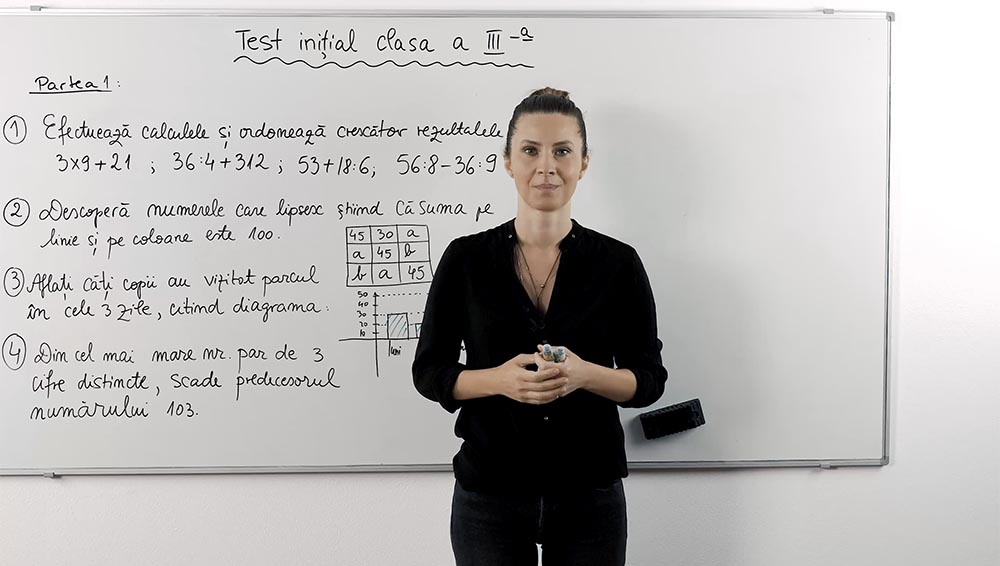 Test inițial clasa a III-a
Partea 1:
1 Efectuează calculele și ordonează crescător rezultatele
3x9+21 ; 36:4+312 ; 53+18:6, 56:8-36:9
2 Descoperă numerele care lipsesc știind că suma pe
linie și pe coloane este 100.
45 30 a
a 45 b
b a 45
3 Aflați câți copii au vizitat parcul
în cele 3 zile, citind diagrama:
50
40
30
20
10
luni
4 Din cel mai mare nr. par de 3
cifre distincte, scade predecesorul
numărului 103.